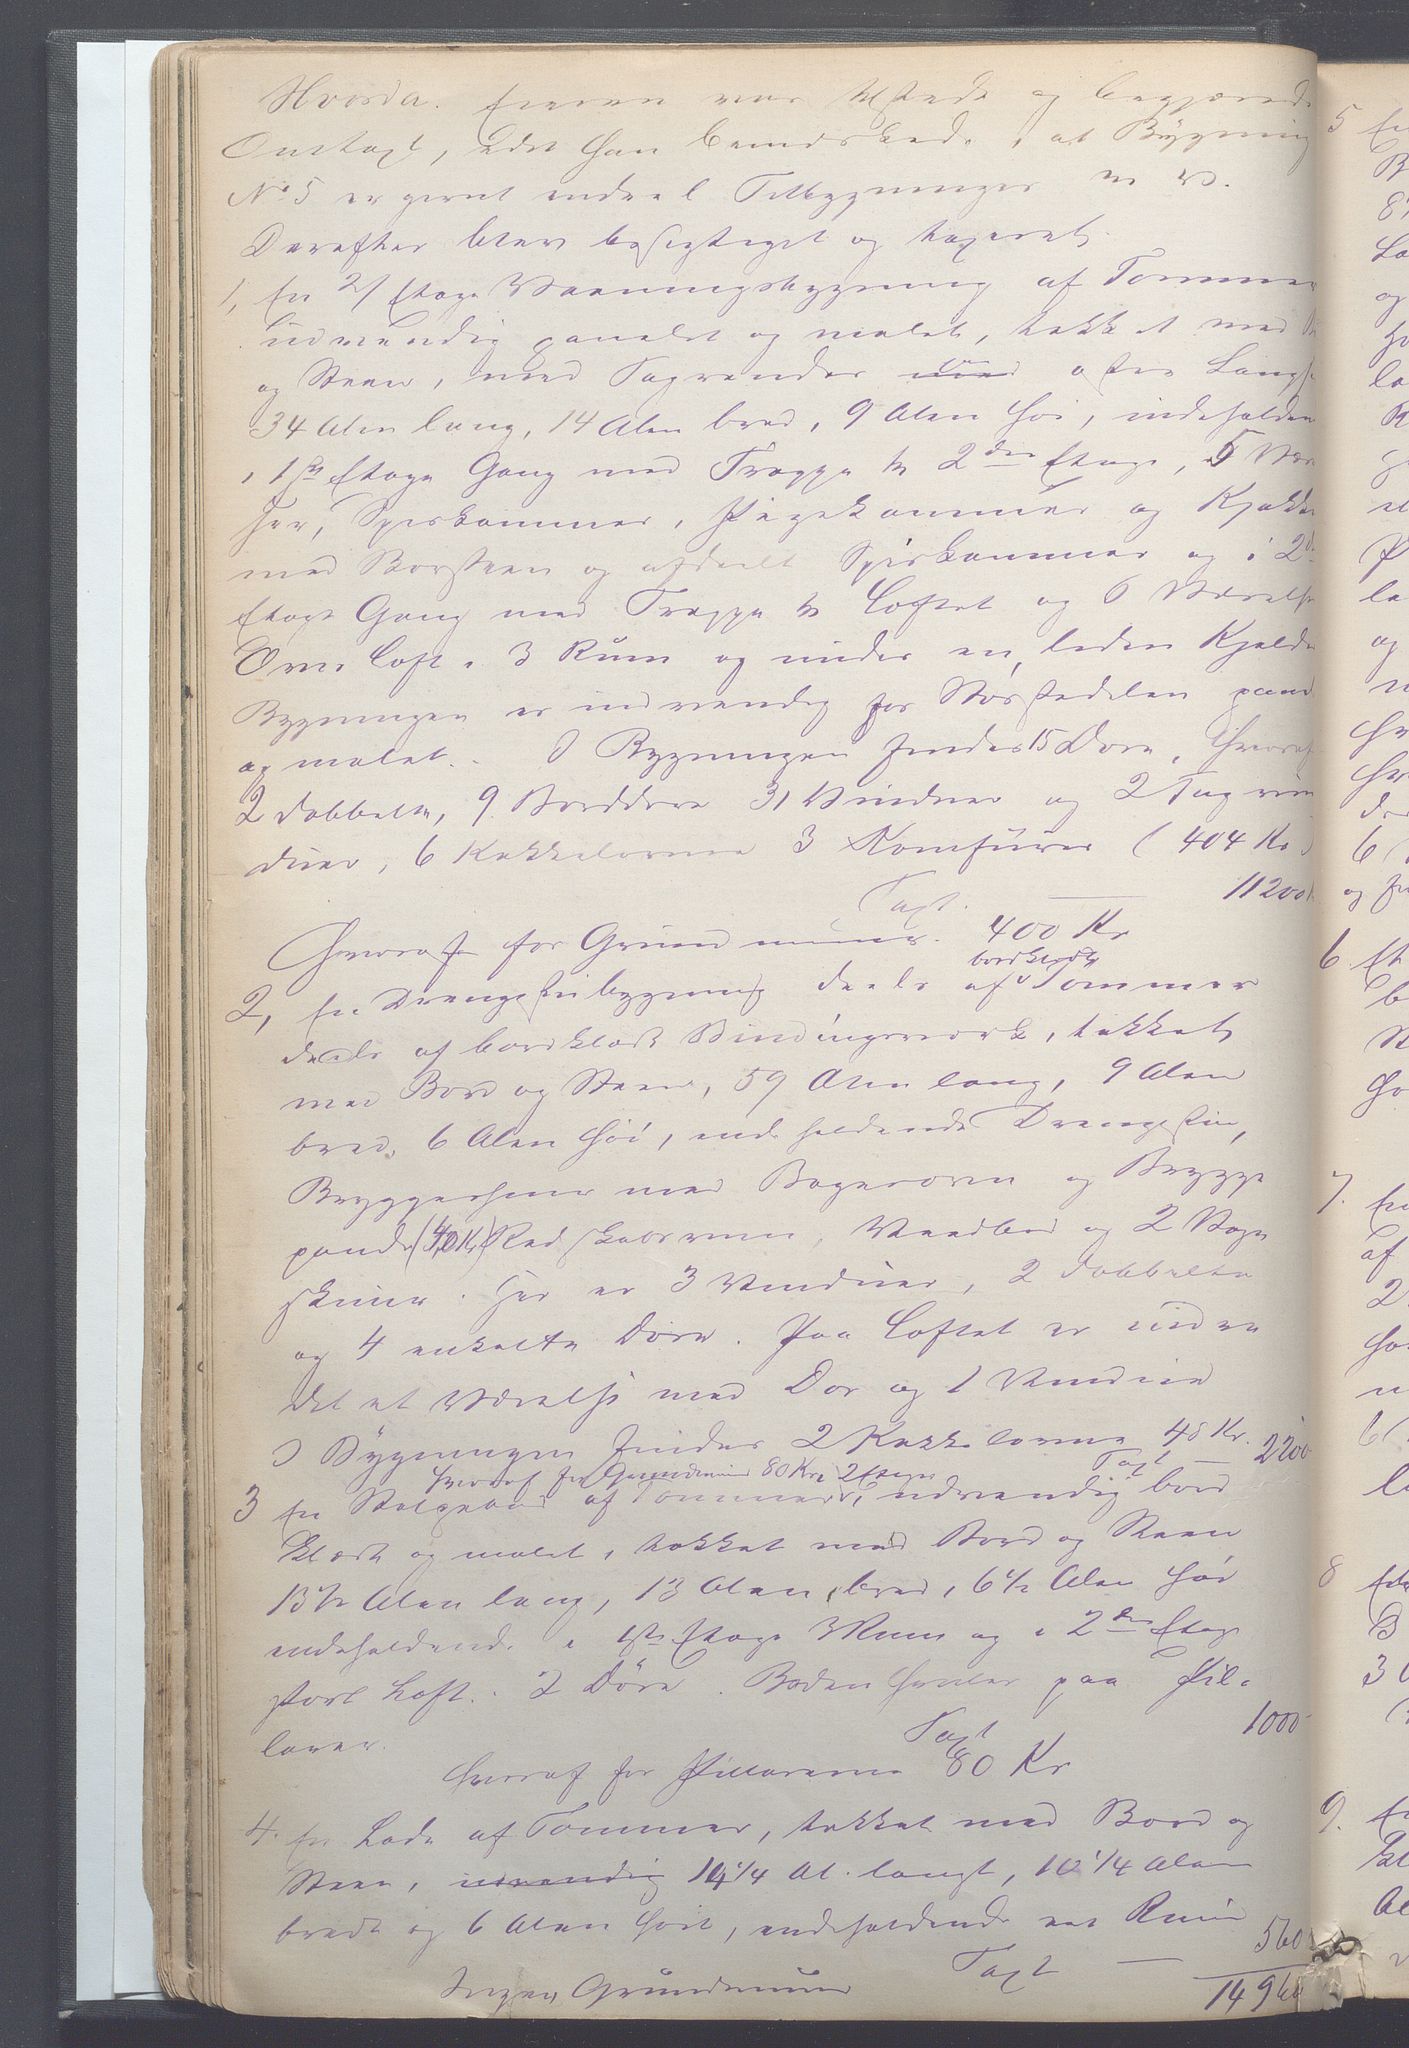 Hvorda. Eieren var tilstede og begjærede
Omtaxt, idet han bemærkede, at Bygning
No 5 er gjort endeel Tilbygninger m v.
Derefter blev besigtiget og taxeret.
1, En 2/ Etage Vaaningsbygning af Tømmer
udvendig panelet og malet, tækket med
og Steen, med Tagrender efter Langs
34 Alen lang, 14 Alen bred, 9 Alen høi, indeholden
i 1ste Etage Gang med Trappe til 2den Etage, 5 Væ
ser, Spiskammer, Pigekammer og Kjøkke
med Vorsteen og afdeelt Spiskammer og i 2d
Etage Gang med Trappe til Loftet og 6 Værelse
Over Loft i 3 Rum og under en liden Kjelde
Bygningen er indvendig for Størstedelen panel
og malet. I Bygningen findes 15 Døre, hvoraf
2 dobbelte, 9 Borddøre 31 Vinduer og 2 Tagvin
duer, 6 Kakkelovne 3 Komfurer (404 Kr)
Taxt. — 11200
Hvoraf for Grundmuur. 400 Kr
bordklædt
2, En Drengestubygning deels af Tømmer
deels af bordklædt Bindingsværk, tækket
med Bord og Steen, 59 Alen lang, 9 Alen
bred, 6 Alen høi, indeholdende Drengestue,
Bryggerhuus med Bagerovn og Brygge
pande (40 Kr) Redskabsrum, Vaadbod og 2 Vogn
skuur. Her er 3 Vinduer, 2 dobbelte
og 4 enkelte Døre. Paa Loftet er indre
det et Værelse med Dør og 1 Vindue
I Bygningen findes 2 Kakkelovne 48 Kr. 2200
hvoraf for Grundmuur 80 Kr. i 2 Etager Taxt —
3 En Stolpebod af Tømmer, udvendig bord
klædt og malet, tækket med Bord og Steen
13 1/2 Alen lang, 13 Alen bred, 6 1/2 Alen høi
indeholdende i 1ste Etage Rum og i 2den Etage
stort Loft. 2 Døre. Boden hviler paa Pil-
larer. Taxt 1000
hvoraf for Pillarerne 80 Kr
4. En Lade af Tømmer, tækket med Bord og
Steen, udvendig 14 1/4 Al. langt, 10 1/4 Alen
bredt og 6 Alen høit, indeholdende eet Rum
Taxt — 560
Ingen Grundmuur 14960
5
6
7.
8
9.